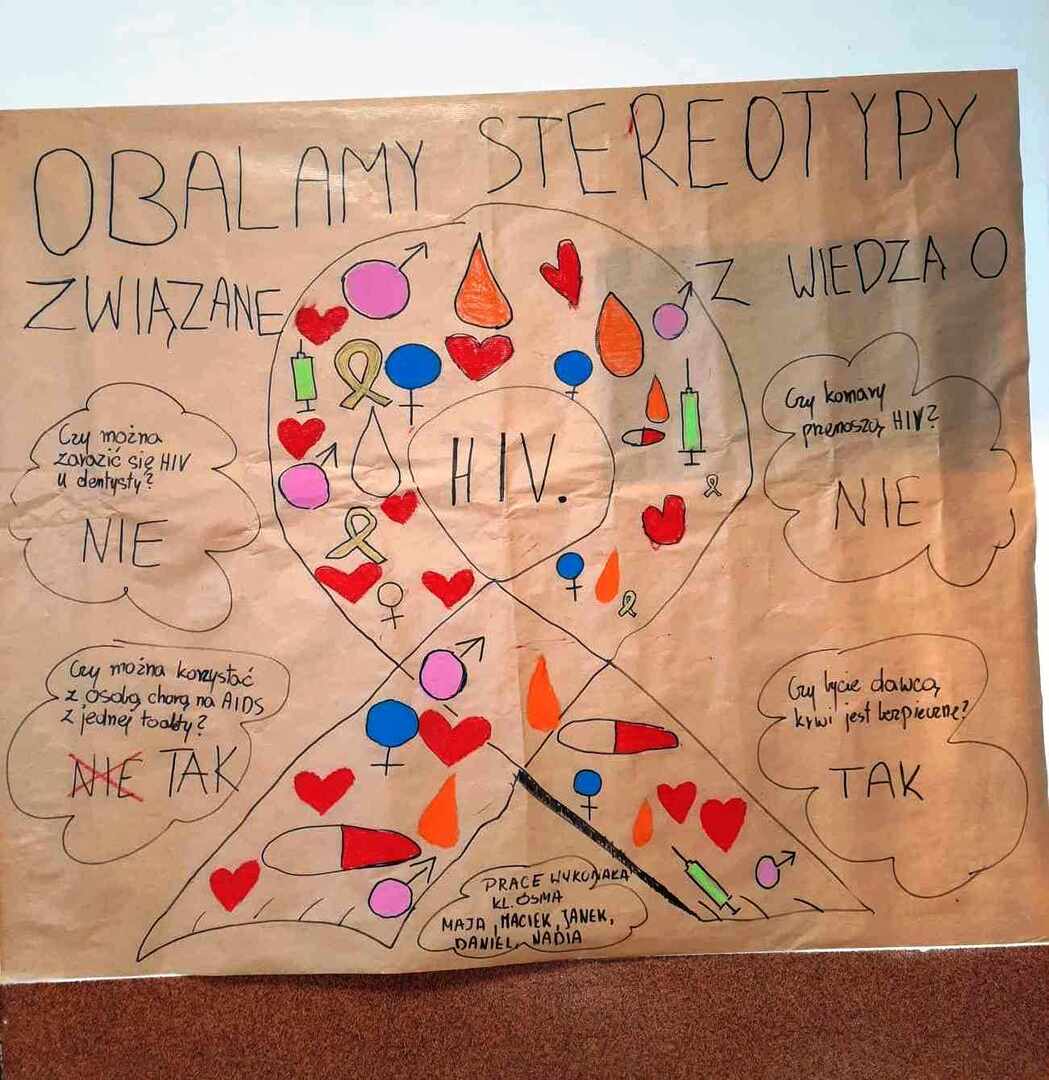 OBALAMY STEREOTYPY
ZWIĄZANE Z WIEDZĄ O
HIV.
Czy można
zarazić się HIV
u dentysty?
NIE
Czy komary
przenoszą HIV?
NIE
Czy można korzystać
z osobą chorą na AIDS
z jednej toalety?
NIE TAK
Czy bycie dawcą
krwi jest bezpieczne?
TAK
PRACE WYKONAŁA
KL. ÓSMA
MAJA, MACIEK, JANEK,
DANIEL, NADIA